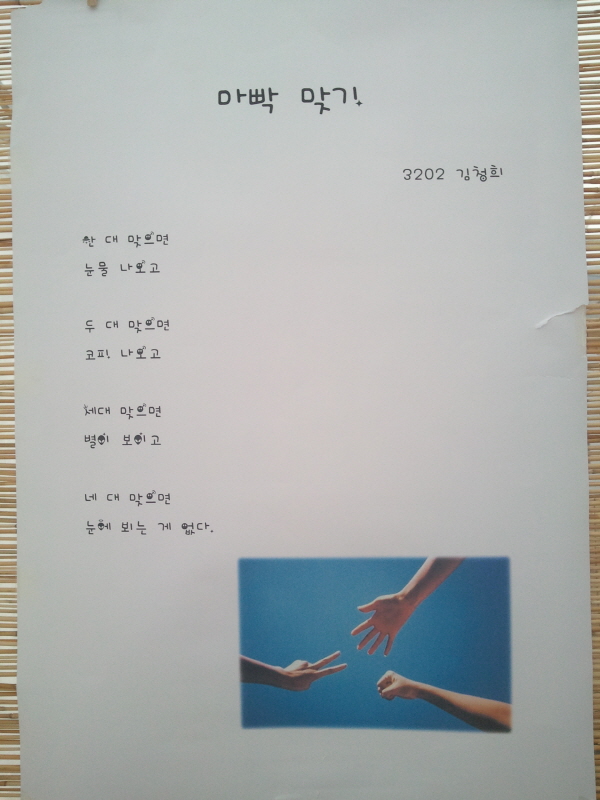 마빡 맞기
3202 김청희
한 대 맞으면
눈물 나오고
두 대 맞으면
코피 나오고
세대 맞으면
별이 보이고
네 대 맞으면
눈에 뵈는 게 없다.